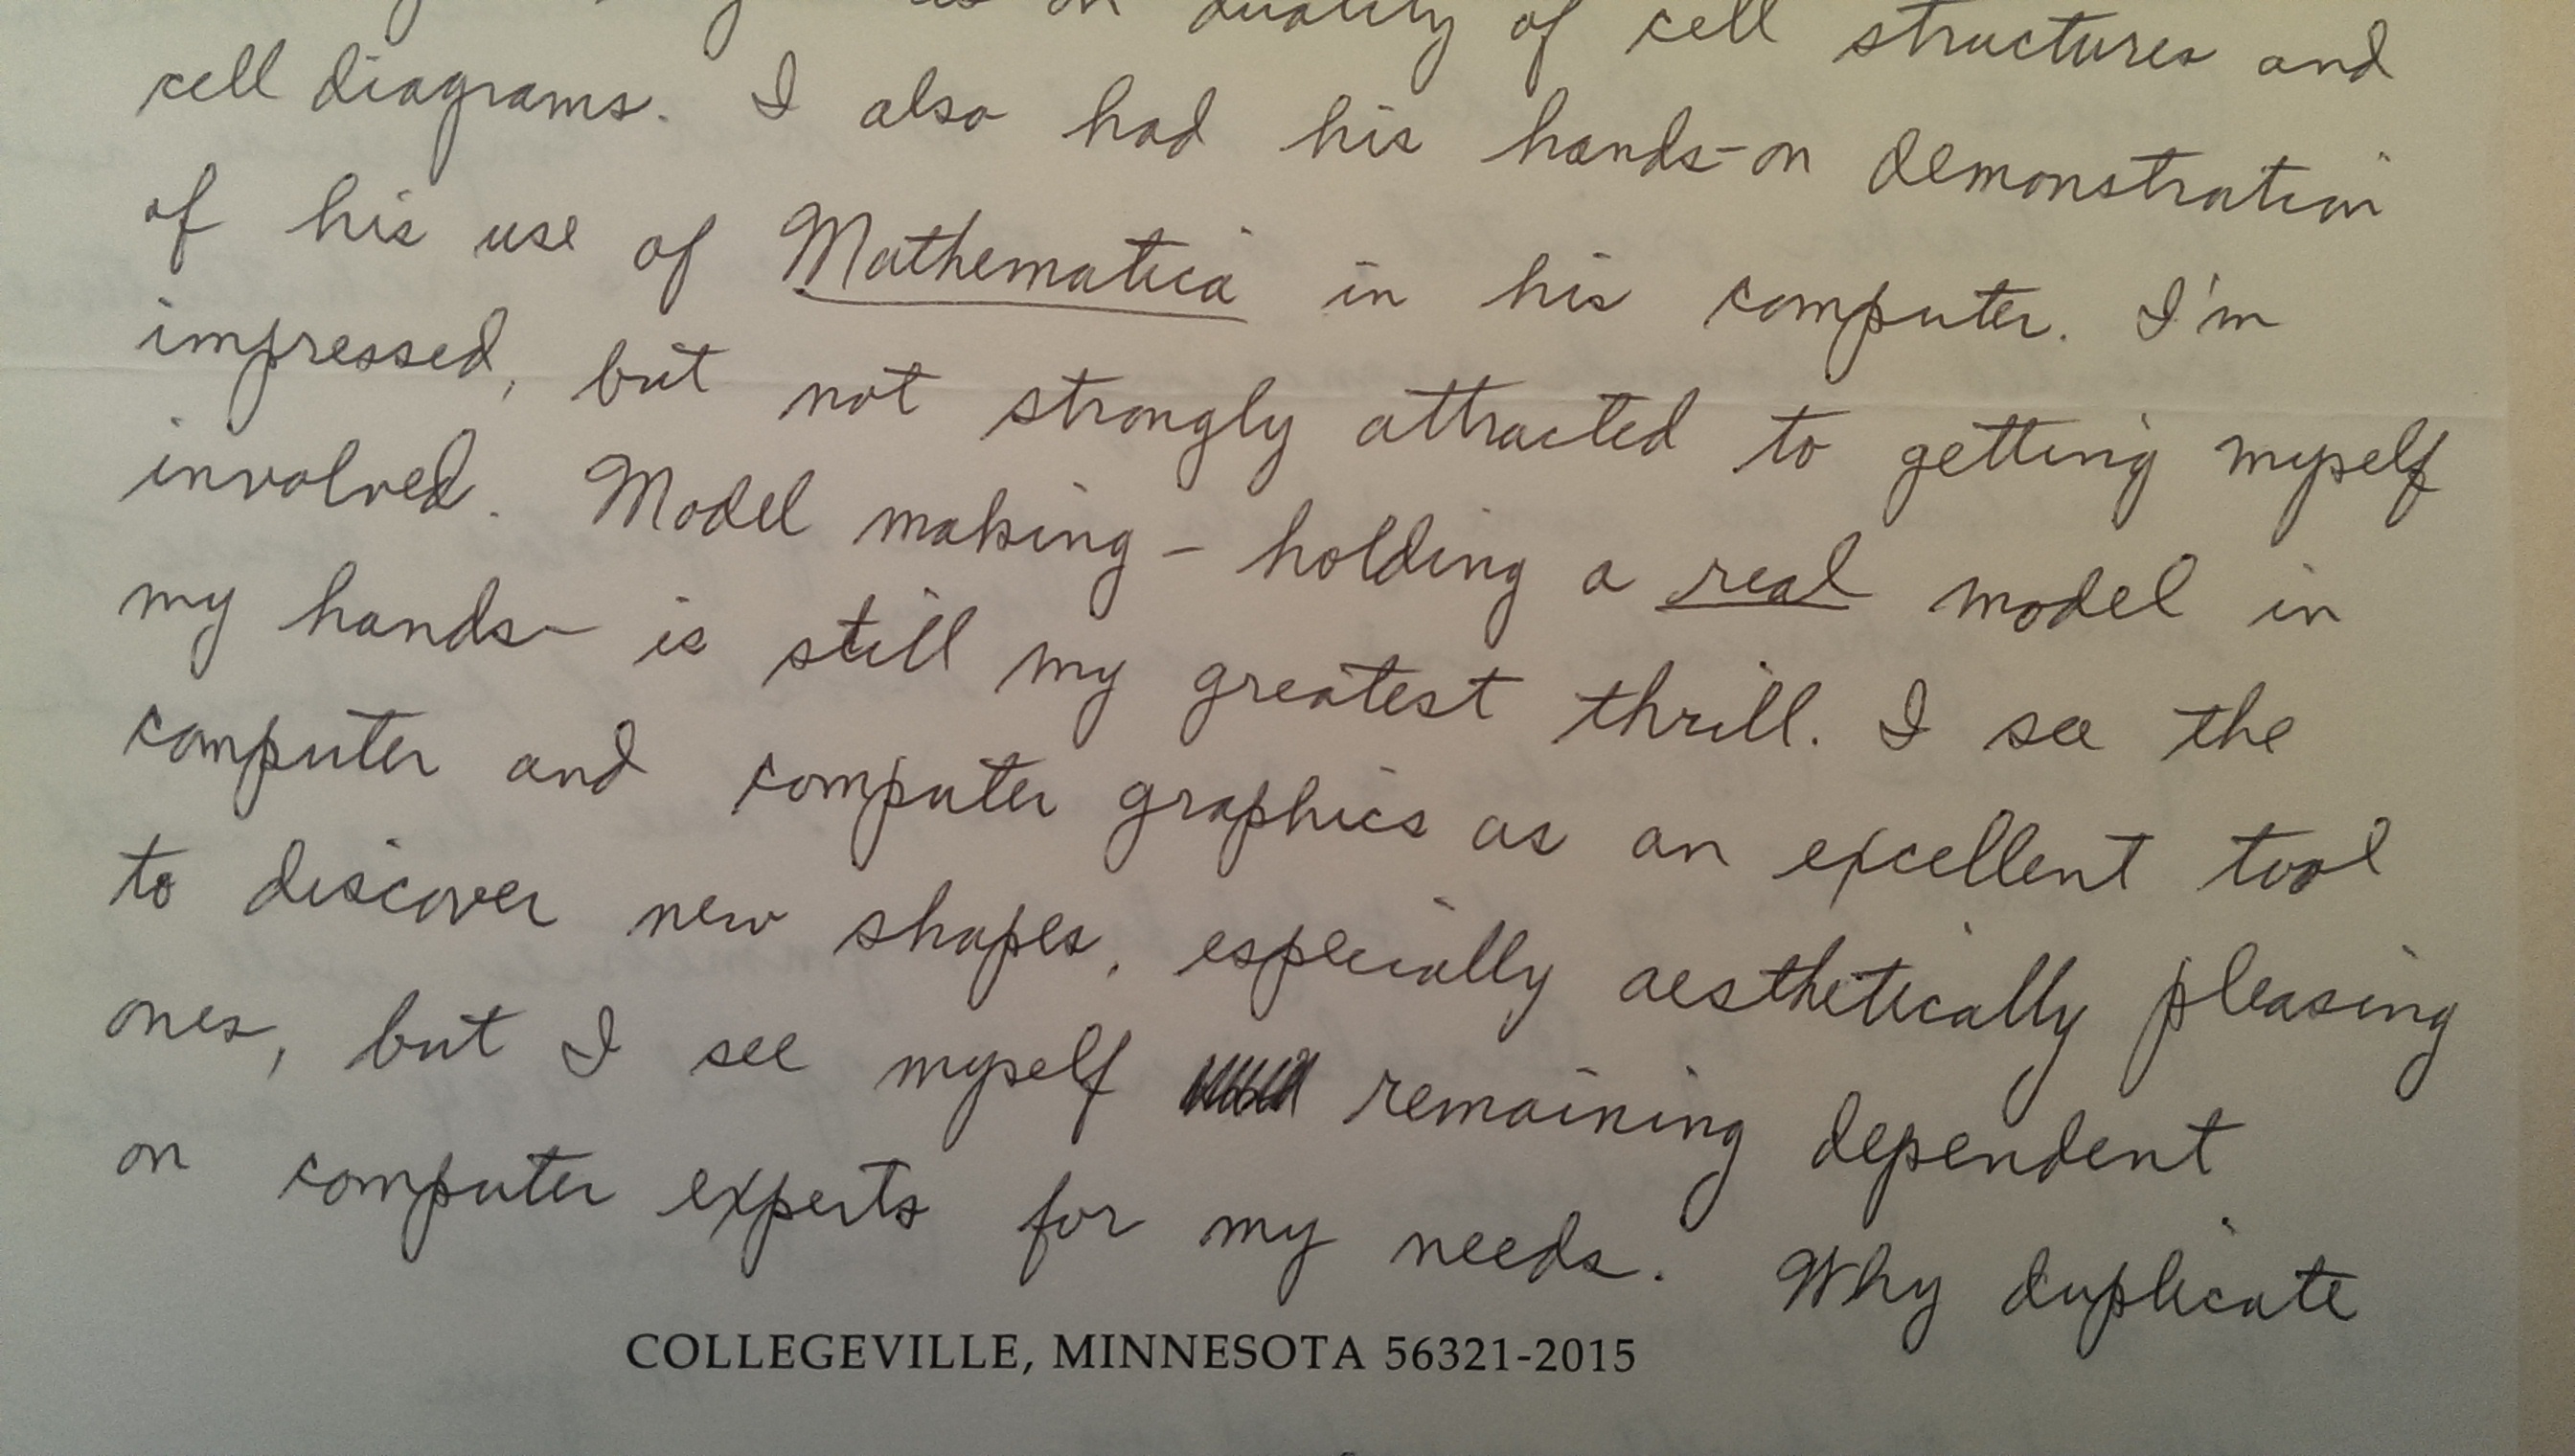 on duality of cell structures and
cell diagrams. I also had his hands-on demonstration
of his use of Mathematica in his computer. I'm
impressed, but not strongly attracted to getting myself
involved. Model making - holding a real model in
my hands - is still my greatest thrill. I see the
computer and computer graphics as an excellent tool
to discover new shapes, especially aesthetically pleasing
ones, but I see myself remaining dependent
on computer experts for my needs. Why duplicate
COLLEGEVILLE, MINNESOTA 56321-2015